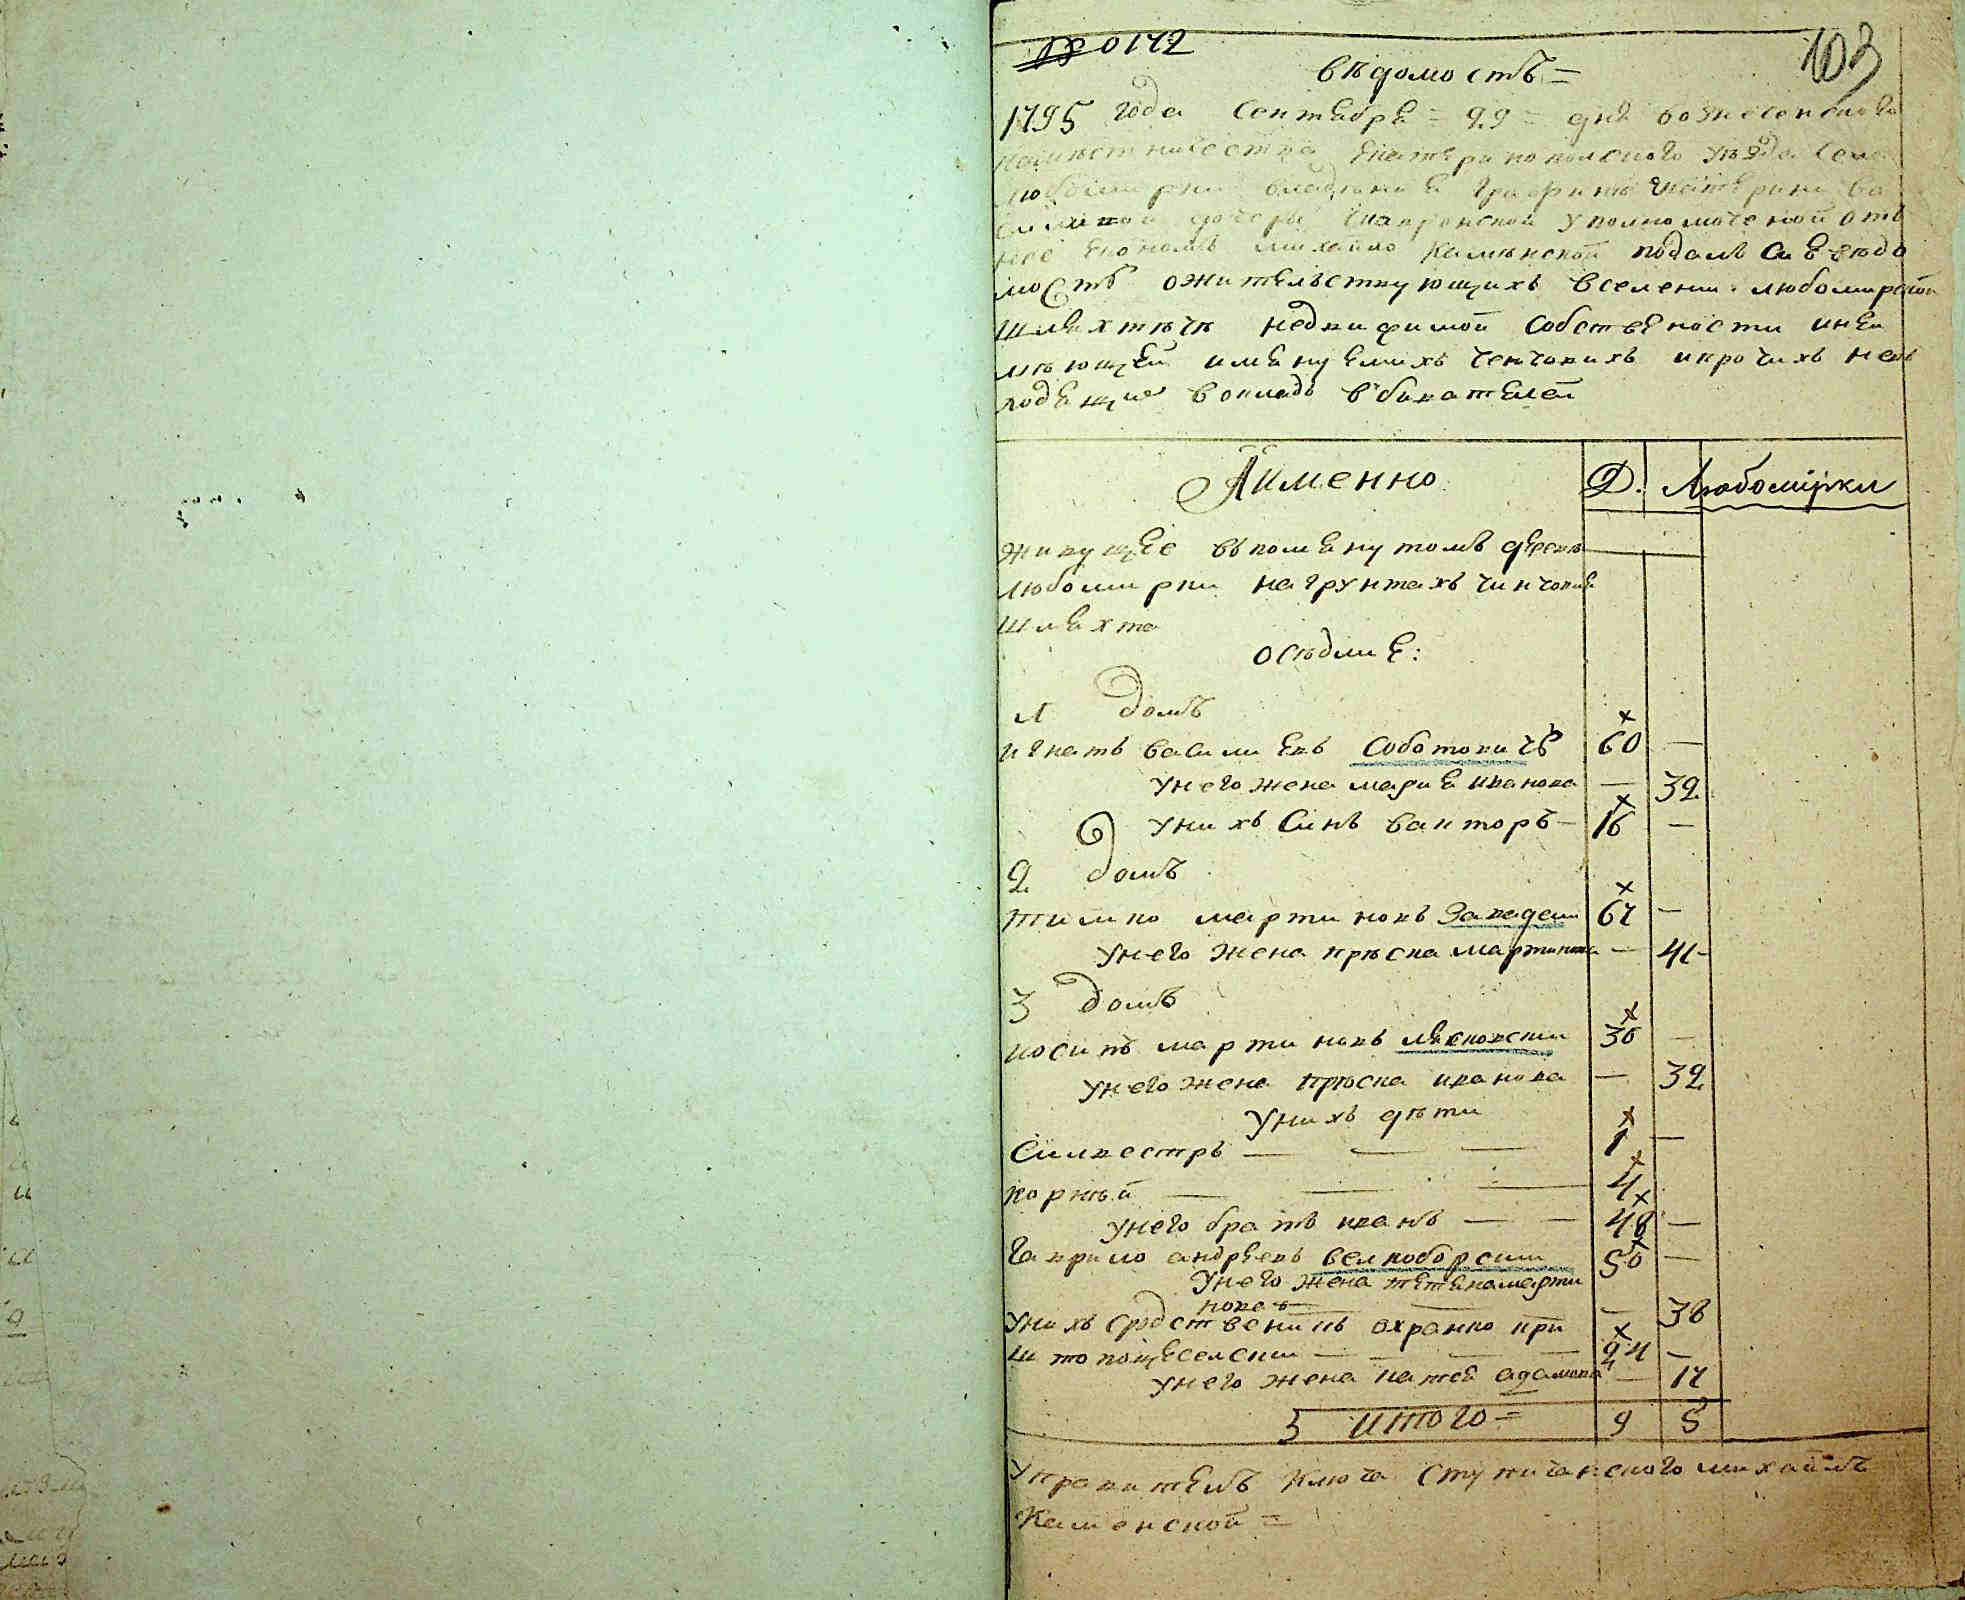 № 0142
103
вѣдомость =
1795 года Сентября = 29 = дня вознесенскаго
намѣстничества Екатеринопольского уѣзда Села
любомирки владения Графини Екатерини Ва
силиевой дочери уполномоченой отъ
нее Економъ михайло Каменской подалъ сию вѣдо
мость ожительствующихъ вселении любомирской
шляхтычь недвижимой собственности инеи
мѣющей именуемихъ ченчовихъ ипрочихъ нев
ходящие вокладъ вбивателей
Аименно
Д.
Любомірки
живущее впомянутомъ деревнѣ
любомирки нагрунтахъ чинчовая
шляхта
осѣдлие:
1 домъ
игнатъ василиевъ Соботовичъ 60 —
унего жена мария иванова — 32
унихъ Синъ викторъ — 16 —
2 домъ
тимко мартиновъ 67 —
унего жена прѣска мартинова — 41 —
3 домъ
иосипъ мартиновъ 36 —
унего жена прѣска иванова — 32
унихъ дѣти
Силвестръ — — — 1 —
корнѣй — — — 4
унего братъ иванъ — — 48 —
Гаврило андреевъ 50 —
унего жена тетянамарти
нова — — — 38
унихъ Сродственикъ охрамко при
— — — 24 —
унего жена катря адамова — 17
3 итого = 9 5
управитель ключа михайлъ
Каменской =